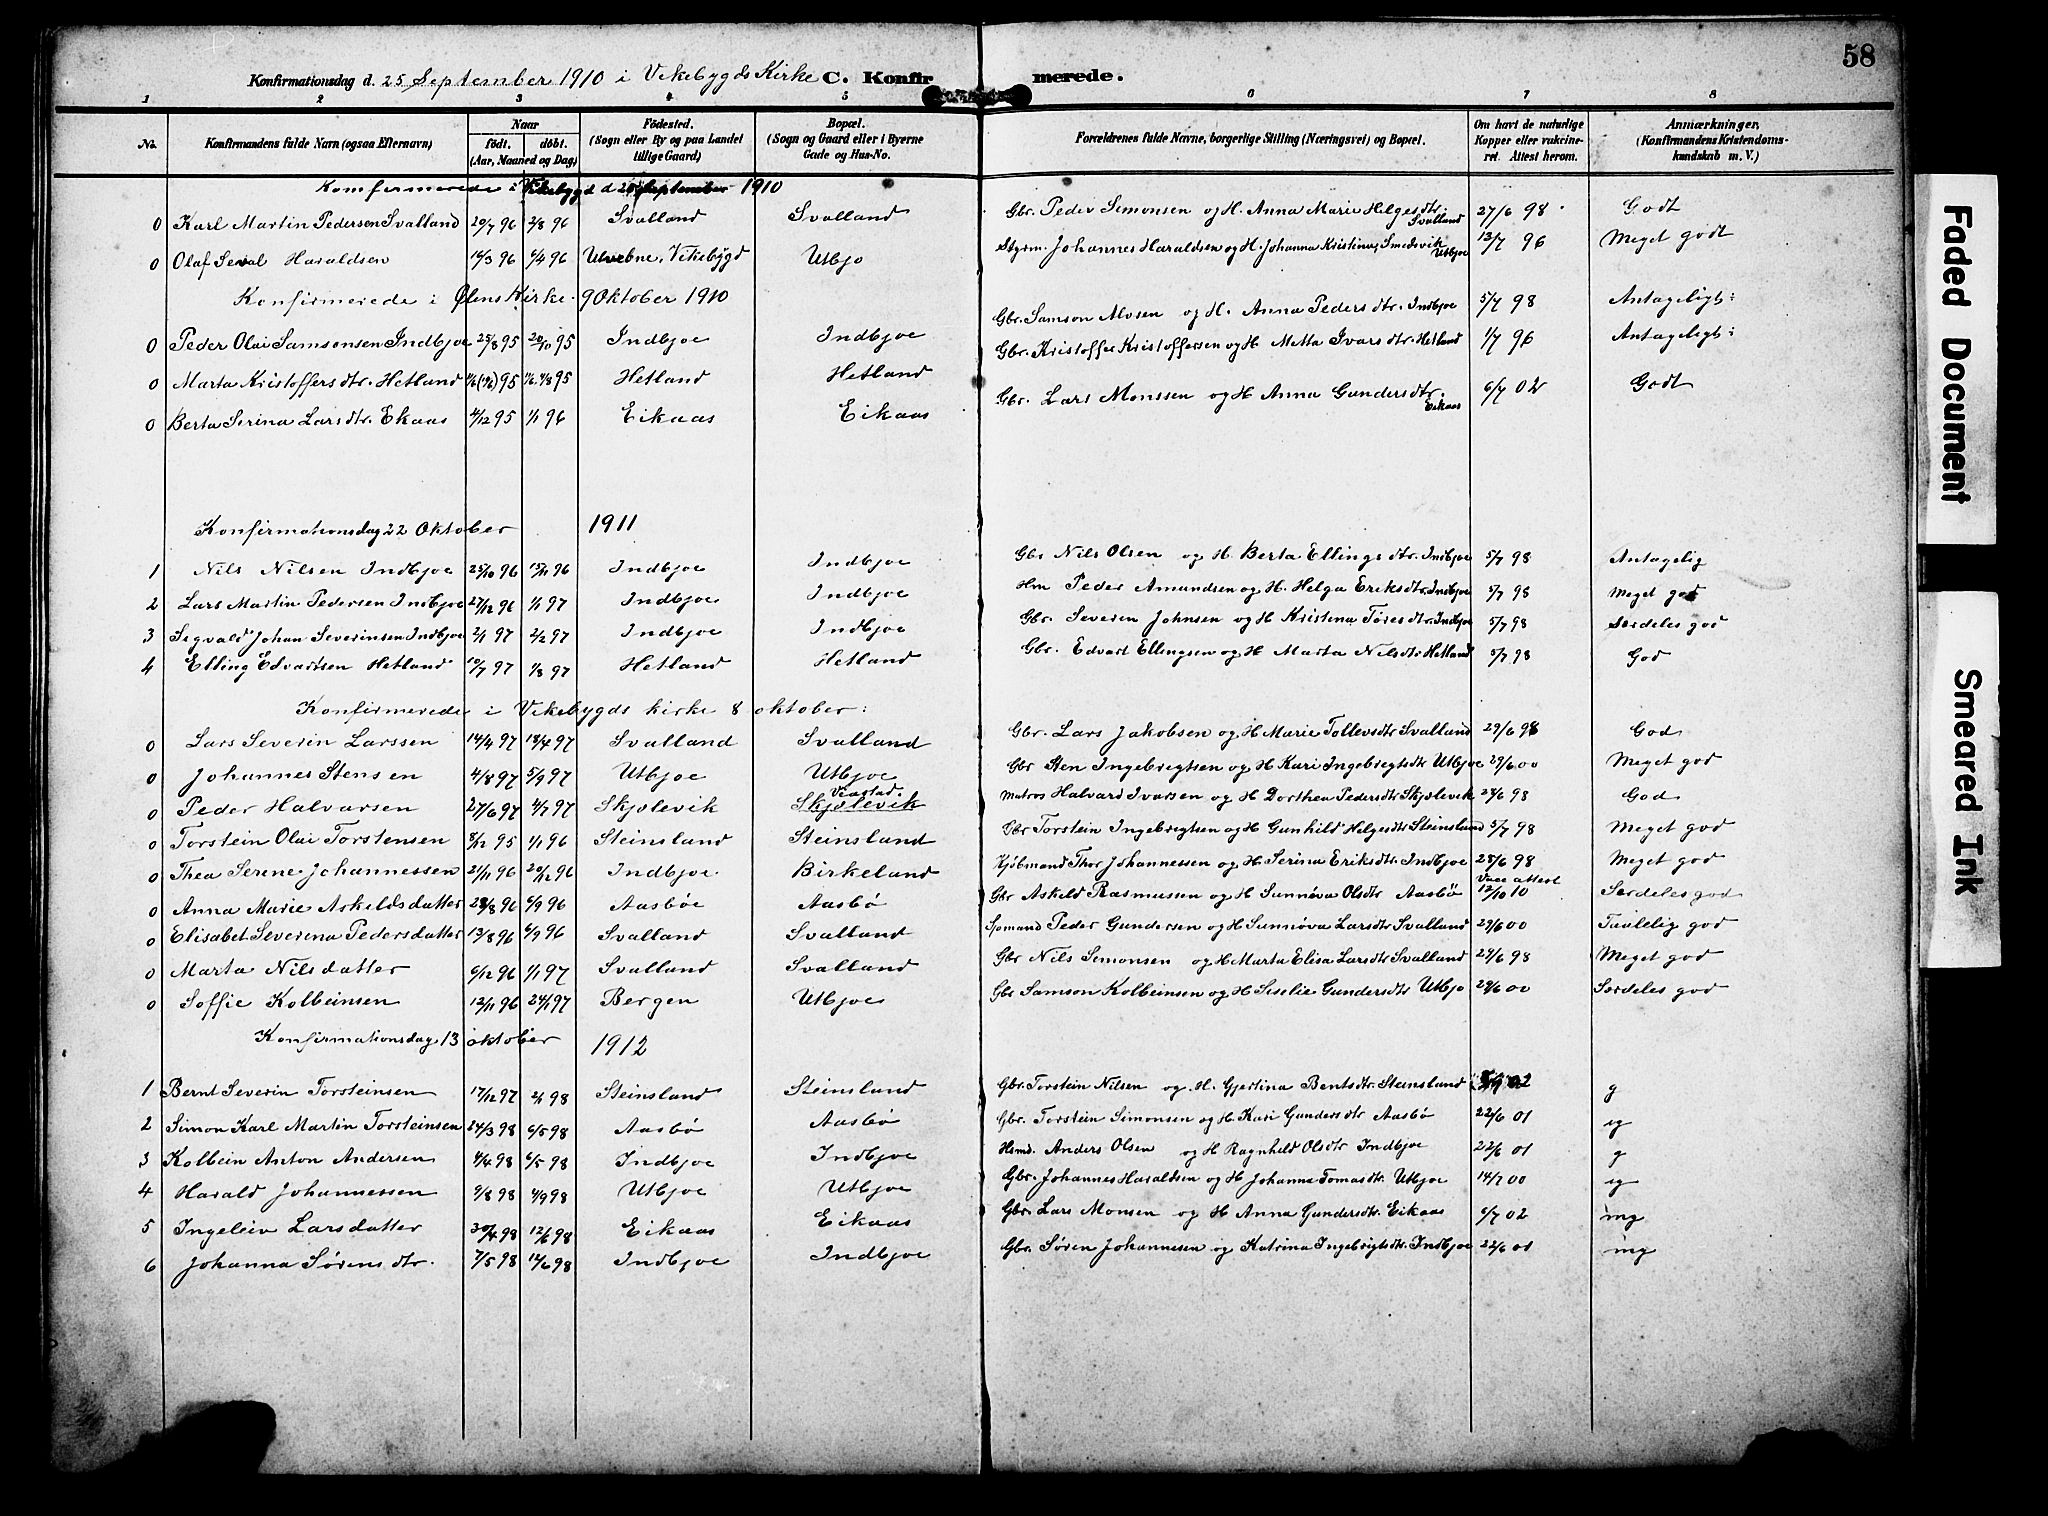 58
Konfirmationsdag d. 25 September 1910 i Vikebygds Kirke C. Konfirmerede.
1 2 3 4 5 6 7 8
No. Konfirmandens fulde Navn (ogsaa Efternavn) Naar født. døbt. (Aar, Maaned og Dag) Fødested. (Sogn eller By og paa Landet tillige Gaard) Bopæl. (Sogn og Gaard eller i Byerne Gade og Hus-No. Forældrenes fulde Navne, borgerlige Stilling (Næringsvei) og Bopæl. Om havt de naturlige Kopper eller vakcineret. Attest herom. Anmærkninger, (Konfirmandens Kristendomskundskab m. V.)
Konfirmerede i Vikebygd d 25 September 1910
0 Karl Martin Pedersen Svalland 20/7 96 2/8 96 Svalland Svalland Gbr. Peder Simonsen og H. Anna Marie Helgesdtr. Svalland 27/6 98 Godt
0 Olaf Haraldsen 16/3 96 6/4 96 Vikebygd Utbjo Styrm. Johannes Haraldsen og H. Johanna Kristina Smedsvik Utbjoe 13/7 96 Meget godt
Konfirmerede i Ølens Kirke 9 Oktober 1910
0 Peder Olai Samsonsen Indbjoe 25/8 95 20/10 95 Indbjoe Indbjoe Gbr. Samson Mosen og H. Anna Pedersdtr. Indbjoe 5/7 98 Antageligt:
0 Marta Kristoffersdtr. Hetland 95 95 Hetland Hetland Gbr. Kristoffer Kristoffersen og H Metta Ivarsdtr. Hetland 1/7 96 Antageligt:
0 Berta Serina Larsdtr. Ekaas 4/12 95 1/1 96 Eikaas Eikaas Gbr. Lars Monssen og H Anna Gundersdtr. Eikaas 6/7 02 Godt
Konfirmationsdag 22 Oktober 1911
1 Nils Nilsen Indbjoe 25/10 96 15/11 96 Indbjoe Indbjoe Gbr Nils Olsen og H Berta Ellingsdtr. Indbjoe 5/7 98 Antagelig
2 Lars Martin Pedersen Indbjoe 27/12 96 1/1 97 Indbjoe Indbjoe Hm Peder Amundsen og H. Helga Eriksdtr. Indbjoe 5/7 98 Meget god
3 Sigvald Johan Severinsen Indbjoe 2/1 97 2/2 97 Indbjoe Indbjoe Gbr. Severin Johnsen og H Kristina Toresdtr. Indbjoe 5/7 98 Særdeles god
4 Elling Edvartsen Hetland 10/7 97 1/8 97 Hetland Hetland Gbr. Edvart Ellingsen og H Marta Nilsdtr Hetland 5/7 98 God
Konfirmerede i Vikebygds kirke 8 oktober:
0 Lars Severin Larssen 14/4 97 18/4 97 Svalland Svalland Gbr. Lars Jakobsen og H Marie Tollevsdtr Svalland 29/6 98 God
0 Johannes Stensen 4/8 97 5/9 97 Utbjoe Utbjoe Gbr Sten Ingebrigtsen og H Kari Ingebrigtsdtr Utbjoe 29/6 00 Meget god
0 Peder Halvarsen 27/6 97 4/7 97 Skjølevik Skjølevik Matros Halvard Ivarsen og H Dorthea Pedersdtr Skjølevik 28/6 98 God
0 Torstein Olai Torstensen 8/12 95 1/1 96 Steinsland Steinsland Gbr Torstein Ingebrigtsen og H Gunhild Helgesdtr Steinsland 5/7 98 Meget god
0 Thea Serene Johannessen 21/11 96 20/12 96 Indbjoe Birkeland Kjøbmand Thor Johannessen og H Serina Eriksdtr Indbjoe 28/6 98 Meget god
0 Anna Marie Askeldsdatter 28/8 96 6/9 96 Aasbøe Aasbø Gbr Askeld Rasmussen og H Sunnøva Olsdtr Aasbø Vacc attest 12/10 10 Særdeles god
0 Elisabet Severina Pedersdatter 13/8 96 6/9 96 Svalland Svalland Sjømand Peder Gundersen og H Sunnøva Larsdtr Svalland 29/6 00 Taalelig god
0 Marta Nilsdatter 6/12 96 1/1 97 Svalland Svalland Gbr Nils Simonsen og H Marta Elisa Larsdtr Svalland 29/6 98 Meget god
0 Soffie Kolbeinsen 12/11 96 24/1 97 Bergen Utbjoe Gbr Samson Kolbeinsen og H Siselie Gundersdtr Utbjo 29/6 00 Særdeles god
Konfirmationsdag 13 oktober 1912
1 Bernt Severin Torsteinsen 17/12 97 2/1 98 Steinsland Steinsland Gbr. Torstein Nilsen og H. Gjertina Bentsdtr. Steinsland 02 g
2 Simon Karl Martin Torsteinsen 24/3 98 6/5 98 Aasbø Aasbø Gbr. Torstein Simonsen og H Kari Gundersdtr Aasbø 22/6 01
3 Kolbein Anton Andersen 4/4 98 6/5 98 Indbjoe Indbjoe Hsmd. Anders Olsen og H Ragnhild Olsdtr Indbjoe 22/6 01 g
4 Harald Johannessen 9/8 98 4/9 98 Utbjoe Utbjoe Gbr. Johannes Haraldsen og H Johanna Tomasdtr. Utbjoe 14/7 00
5 Ingeleiv Larsdatter 30/4 98 12/6 98 Eikaas Eikaas Gbr. Lars Monsen og H Anna Gundersdtr. Eikaas 6/7 02 mg
6 Johanna Sørensdtr. 7/5 98 12/6 98 Indbjoe Indbjoe Gbr. Søren Johannesen og Katrina Ingebrigtsdtr. Indbjoe 22/6 01 mg
Faded Document
Smeared Ink